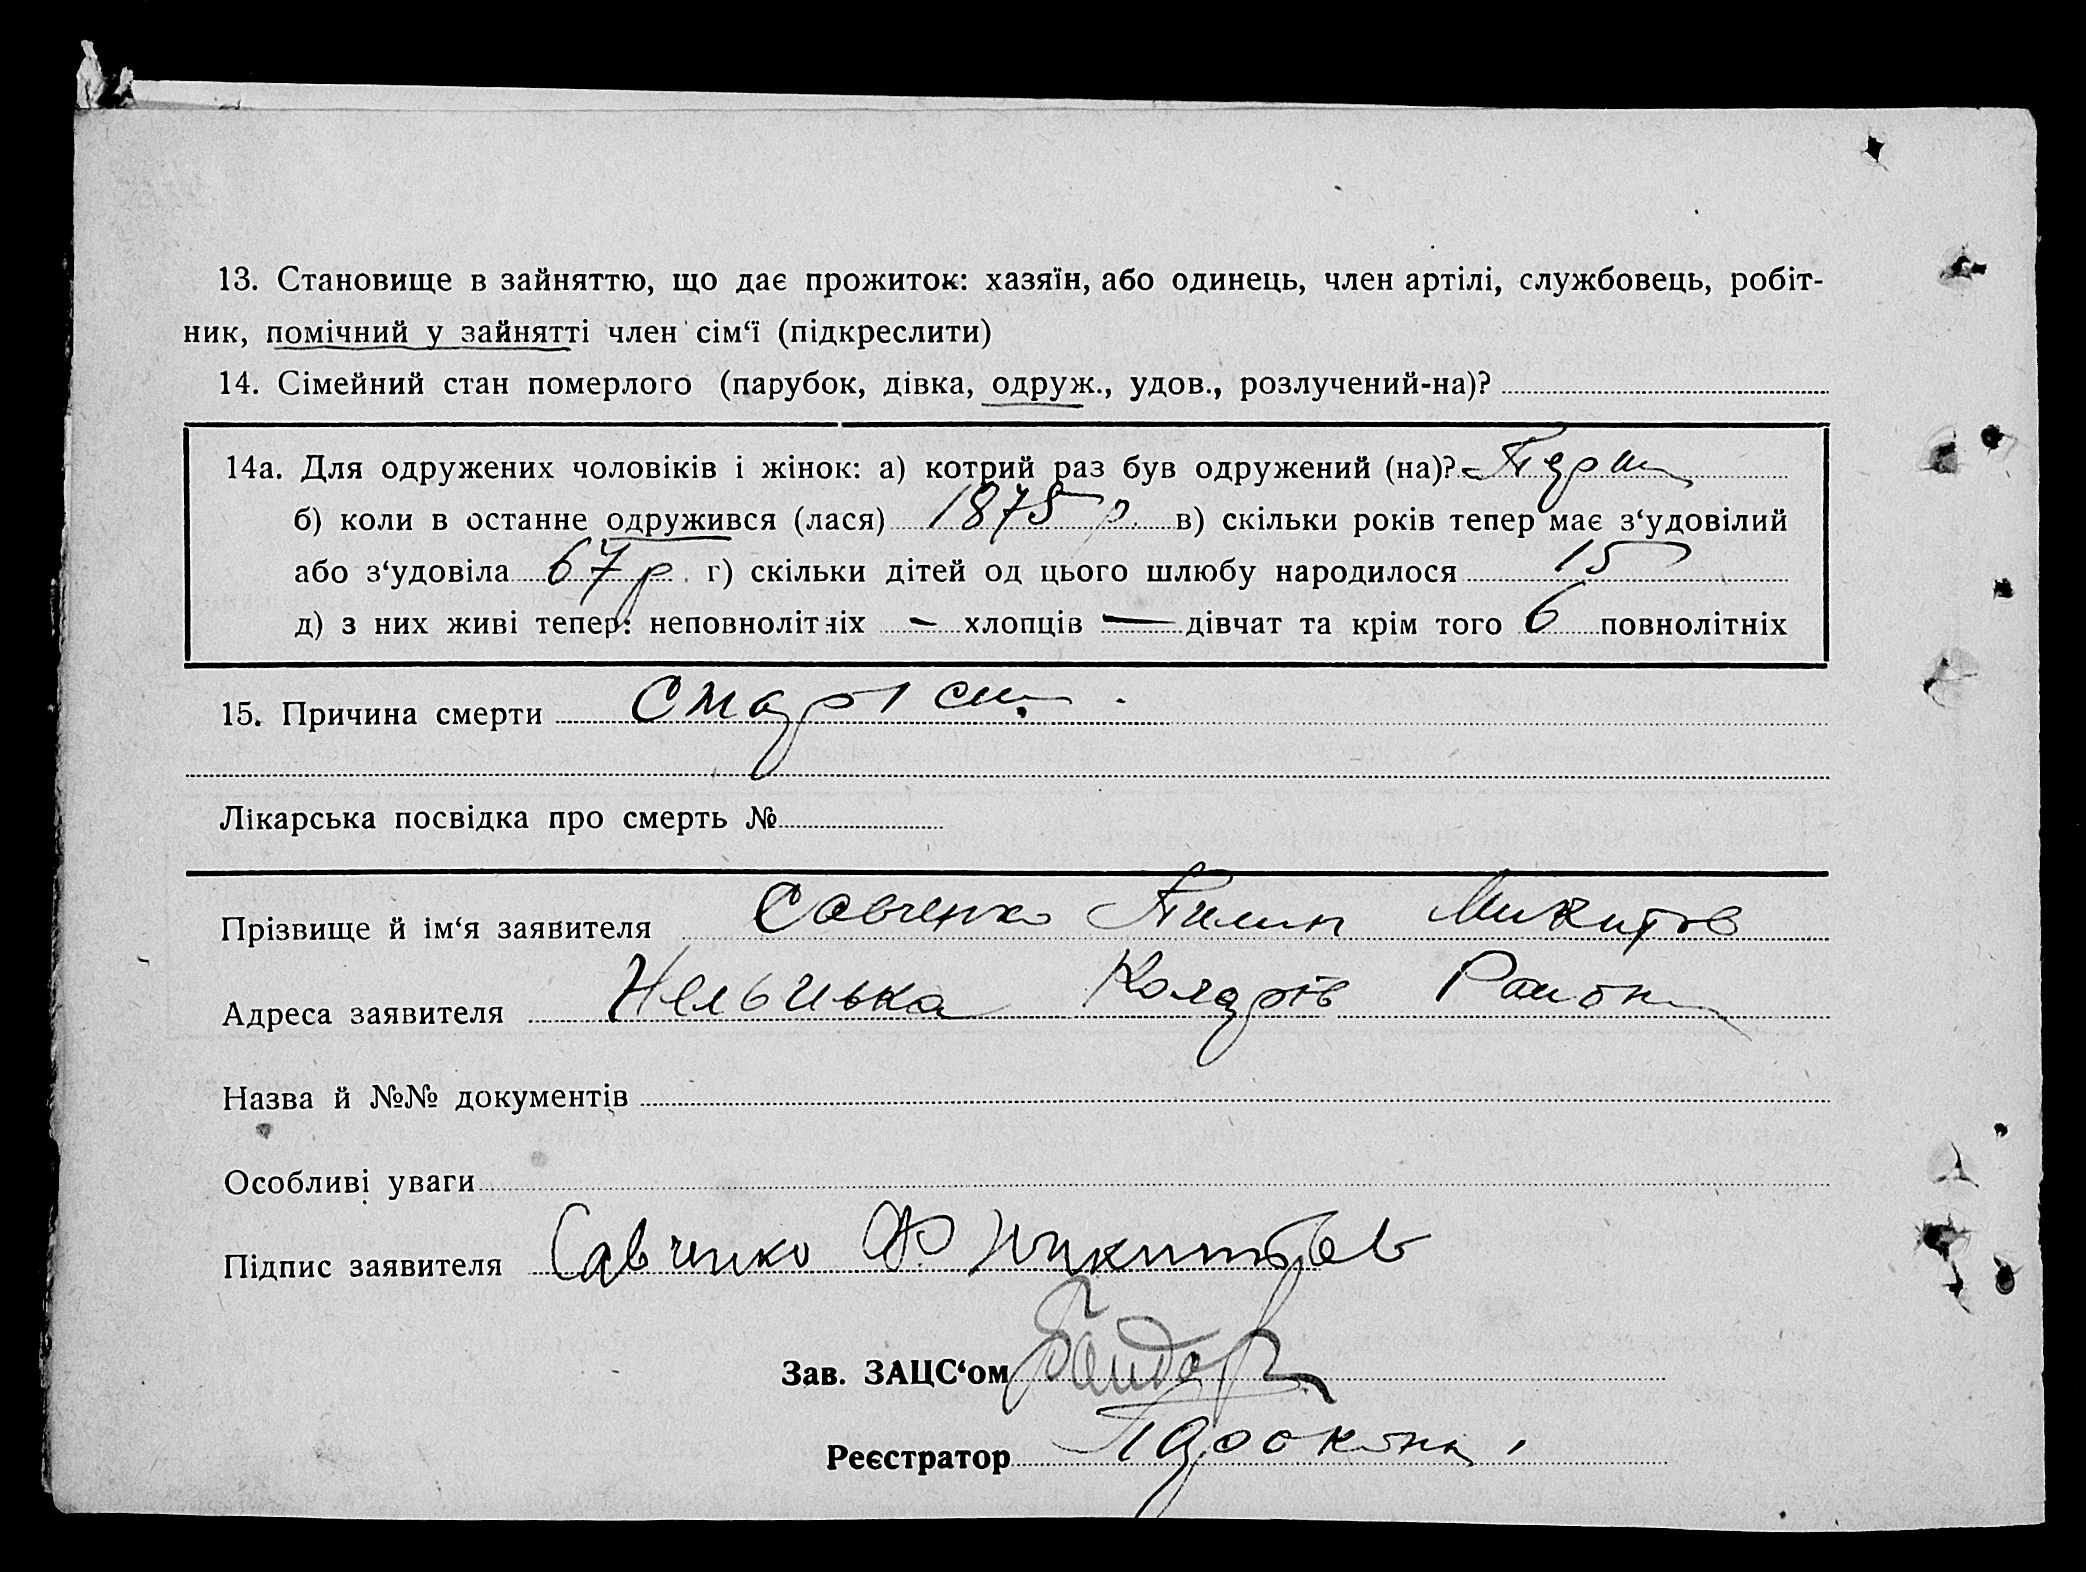 13. Становище в зайняттю, що дає прожиток: хазяїн, або одинець, член артілі, службовець, робіт-
ник, помічний у зайнятті член сім‘ї (підкреслити)
14. Сімейний стан померлого (парубок, дівка, одруж., удов., розлучений-на)?
14а. Для одружених чоловіків і жінок: а) котрий раз був одружений (на)?
б) коли в останне одружився (лася) 1875 р. в) скільки років тепер має з‘удовілий
або з‘удовіла 67 р. г) скільки дітей од цього шлюбу народилося 15
д) з них живі тепер: неповнолітніх — хлопців — дівчат та крім того 6 повнолітніх
15. Причина смерти
Лікарська посвідка про смерть №
Прізвище й ім‘я заявителя Савченко Пилип Микитов
Адреса заявителя
Назва й №№ документів
Особливі уваги
Підпис заявителя Савченко Ф
Зав. ЗАЦС‘ом
Реєстратор